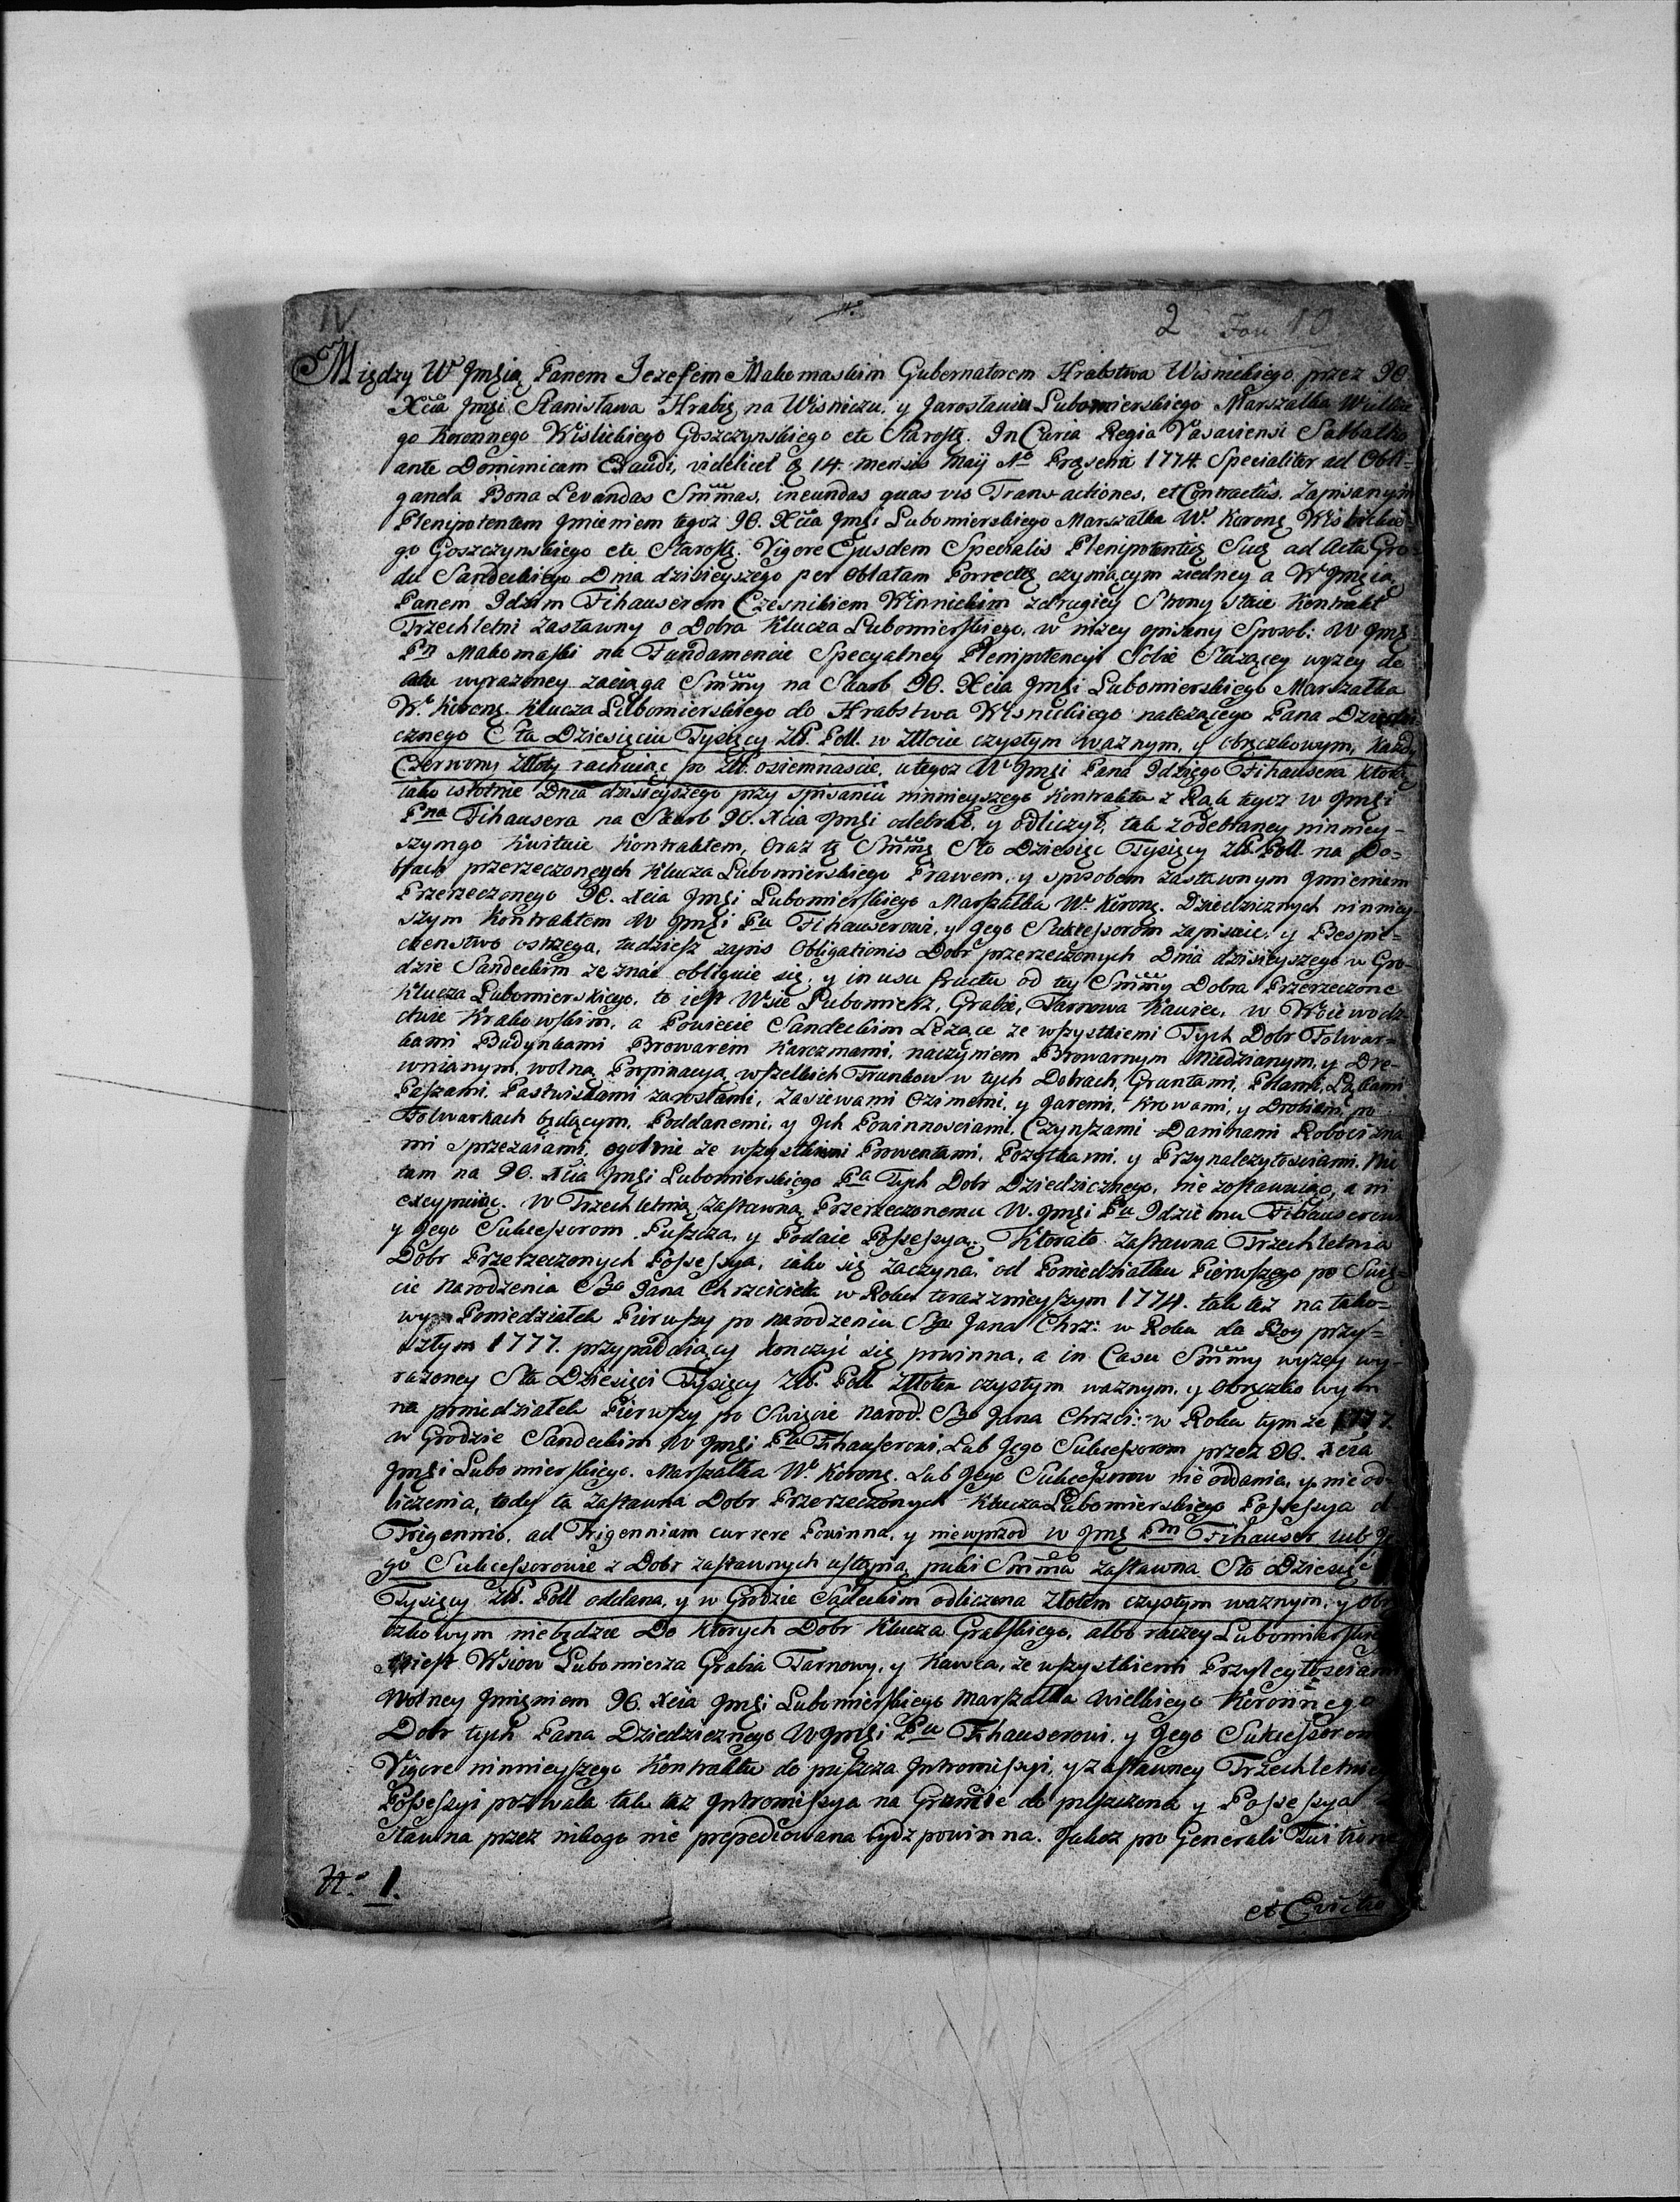 IV.
2 Fou 10
Między W Jmścią Panem Jozefem Makomaskim Gubernatorem Hrabstwa Wisnickiego przez JO
Xcia Jmsci Stanisława Hrabię na Wisniczu, y Jarosławiu Lubomierskiego Marszałka Wielkie
go Koronnego Wislickiego Goszczynskiego etc Starostę. In Curia Regia Varsaviensi Sabbatho
ante Dominicam Exaudi, videlicet d 14. mensis Maij Ao Præsenti 1774. Specialiter ad Obli=
ganda Bona Levandas Summas, ineundas quas vis Transactiones, et Contractus. zapisanym
Plenipotentem Jmieniem tegoz JO. Xcia Jmści Lubomierskiego Marszałka W. Koronę Wislickie=
go Goszczynskiego etc Starostę. Vigore Ejusdem Specialis Plenipotentię Suę ad Acta Gro=
du Sandeckiego Dnia dzisieyszego per Oblatam Porrectę czyniącym ziedney a W Jmścią
Panem Idzim Fihauserem Czesnikiem Winnickim zdrugiey Strony staie Kontrakt
Trzechletni Zastawny o Dobra Klucza Lubomierskiego, w nizey opisany Sposob: W Jmść
Pn Makomaski na Fundamencie Specyalney Plenipotencyi Sobie Służącey wyzey do
aktu wyrazoney zaciąga Summy na Skarb JO. Xcia Jmści Lubomierskiego Marszałka
W. Koronę. Klucza Lubomierskiego do Hrabstwa Wisnickiego nalezącego Pana Dziedzi
cznego Sta Dziesięciu Tysięcy Złł. Poll. w Złłocie czystym waznym, y obrączkowym, kazdy
Czerwony Złłoty rachuiąc po Złł. osiemnascie, u tegoz W Jmści Pana Idziego Fihausera którą
iako istotnie Dnia dzisieyszego przy spisaniu ninieyszego Kontraktu z Rąk tegoz W Jmści
Pna Fihausera na Skarb JO. Xcia Jmści odebrał, y odliczył, tak z odebraney ninniey=
szymgo kwituie Kontraktem, Oraz tę Summę Sto Dziesięc Tysięcy Złł. Poll. na Do=
brach przerzeczonych Klucza Lubomierskiego Prawem, y sposobem zastawnym Jmieniem
Przerzeczonego JO. Xcia Jmści Lubomierskiego Marszałka W. Koronę. Dziedzicznych ninniey=
szym Kontraktem W Jmści Pu Fihauserowi, y Jego Sukcessorom zapisuie, y Bespie=
czenstwo ostrzega, tudziesz zapis Obligationis Dobr przerzeczonych Dnia dzisieyszego w Gro=
dzie Sandeckim zeznać obliguie się, y in usu fructu od tey Summy Dobra Przerzeczone
Klucza Lubomierskiego, to iest Wsie Lubomierz, Grabie, Tarnowa Kawiec, w Woiewodz=
twie Krakowskim, a Powiecie Sandeckim Leżące ze wszystkiemi Tych Dobr Folwar=
kami Budynkami Browarem Karczmami, naczyniem Browarnym miedzianym, y Dre=
wnianym, wolną Propinacyą wszelkich Trunkow w tych Dobrach, Gruntami, Polami, Łąkami
Paszami, Pastwiskami zaroslami, Zasiewami Ozimemi, y Jaremi, Krowami, y Drobiem, po
Folwarkach będącym, Poddanemi, y Jch Powinnosciami, Czynszami Daninami Robocizna
mi sprzezaiami, ogolnie ze wszystkiemi Prowentami, Pozytkami, y Przynalezytosciami. Nic
tam na JO. Xcia Jmści Lubomierskiego Pa Tych Dobr Dziedzicznego, nie zostawuiąc, a ni
excypuiąc. w Trzechletnią Zastawną Przerzeczonemu W. Jmści Pu Idziemu Fihauserowi
y Jego Sukcessorom Puszcza, y Podaie Possessyą. Ktorato Zastawna Trzechletnia
Dobr Przerzeczonych Possessya, iako się zaczyna od Poniedziałku Pierwszego po Swię=
cie Narodzenia Sgo Jana Chrzciciela w Roku teraznieyszym 1774. tak tez na tako=
wym Poniedziałek Pierwszy po Narodzeniu Sgo Jana Chrz: w Roku da Bog przy=
szłym 1777. przypaddaiący konczyć się powinna, a in Casu Summy wyzey wy=
razoney Sta Dziesięci Tysięcy Złł. Poll Złłotem czystym waznym, y Obrączkowym
na poniedziałek Pierwszy po Swięcie Narod. Sgo Jana Chrzci: w Roku tym ze 1777.
w Grodzie Sandeckim W Jmści Pu Fihauserowi, Lub Jego Sukcessorom przez JO. Xcia
Jmści Lubomierskiego. Marszałka W. Koronę. Lub Jego Sukcessorow nie oddania, y nie od=
liczenia, tedy ta Zastawna Dobr Przerzeczonych Klucza Lubomierskiego Possessya de
Triennio, ad Triennium currere Powinna, y niewprzod W Jmć Pan Fihauser lub Je
go Sukcessorowie z Dobr zastawnych ustąpią, puki Summa zastawna Sto Dziesięć
Tysięcy Złł. Poll oddana, y w Grodzie Sądeckim odliczona Złotem czystym waznym, y Obrą
czkowym niebędzie Do ktorych Dobr Klucza Grabskiego, albo raczey Lubomierskie
to iest Wsiow Lubomierza Grabia Tarnowy, y Kawca, ze wszystkiemi Przyległosciami
wolney Jmieniem JO. Xcia Jmści Lubomierskiego Marszałka Wielkiego Koronnego
Dobr tych Pana Dziedzicznego W Jmści Pu Fihauserowi, y Jego Sukcessorom
Vigore ninnieyszego Kontraktu do puszcza Jntromissyi, y Zastawney Trzechletniey
Possessyi pozwala tak tez Jntromissya na Gruncie do puszczona y Possessya
stawna przez nikogo nie prepediowana bydz powinna. Jakoz pro Generali Tuitione
No. 1.
et Evictio